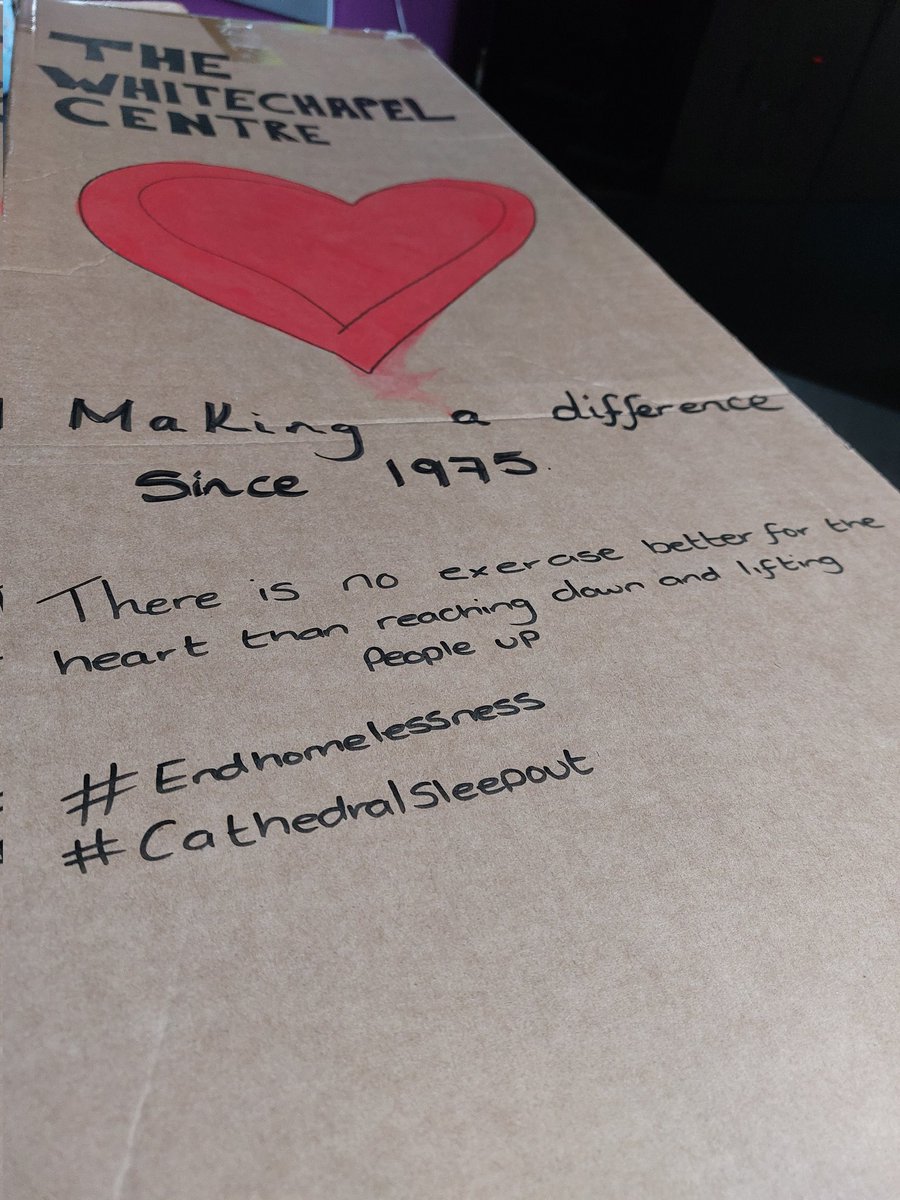 THE
WHITECHAPEL
CENTRE
Making a difference
Since 1975.
There is no exercise better for the
heart than reaching down and lifting
People up
#Endhomelessness
#CathedralSleepout